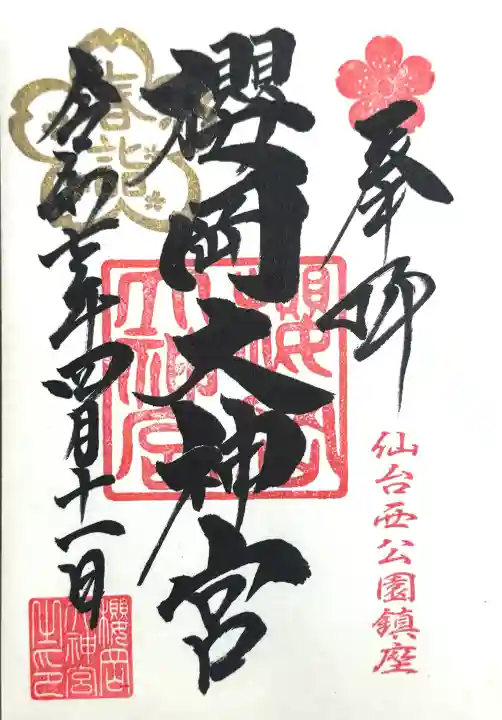 奉拝
仙台西公園鎮座
櫻岡大神宮
櫻岡
大神宮
春詣
令和七年四月十一日
櫻岡
大神宮
之印